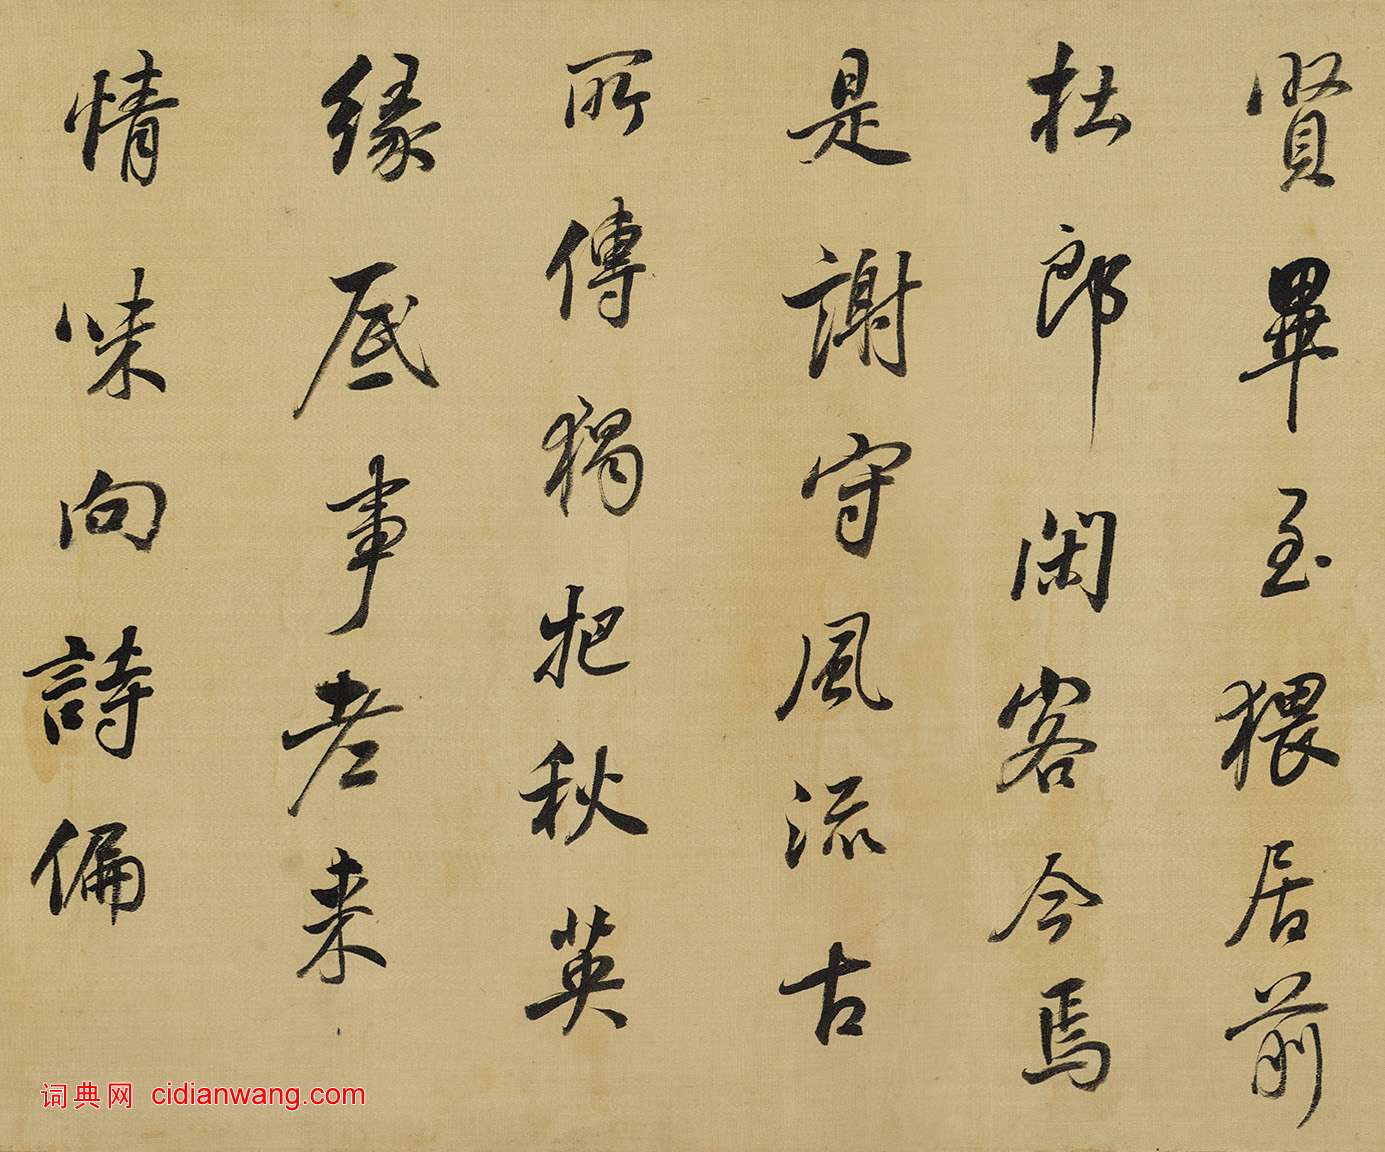 賢畢至猥居前
杜郎閑客今焉
是謝守風流古
所傳獨把秋英
緣底事老来
情味向詩偏
词典网 cidianwang.com